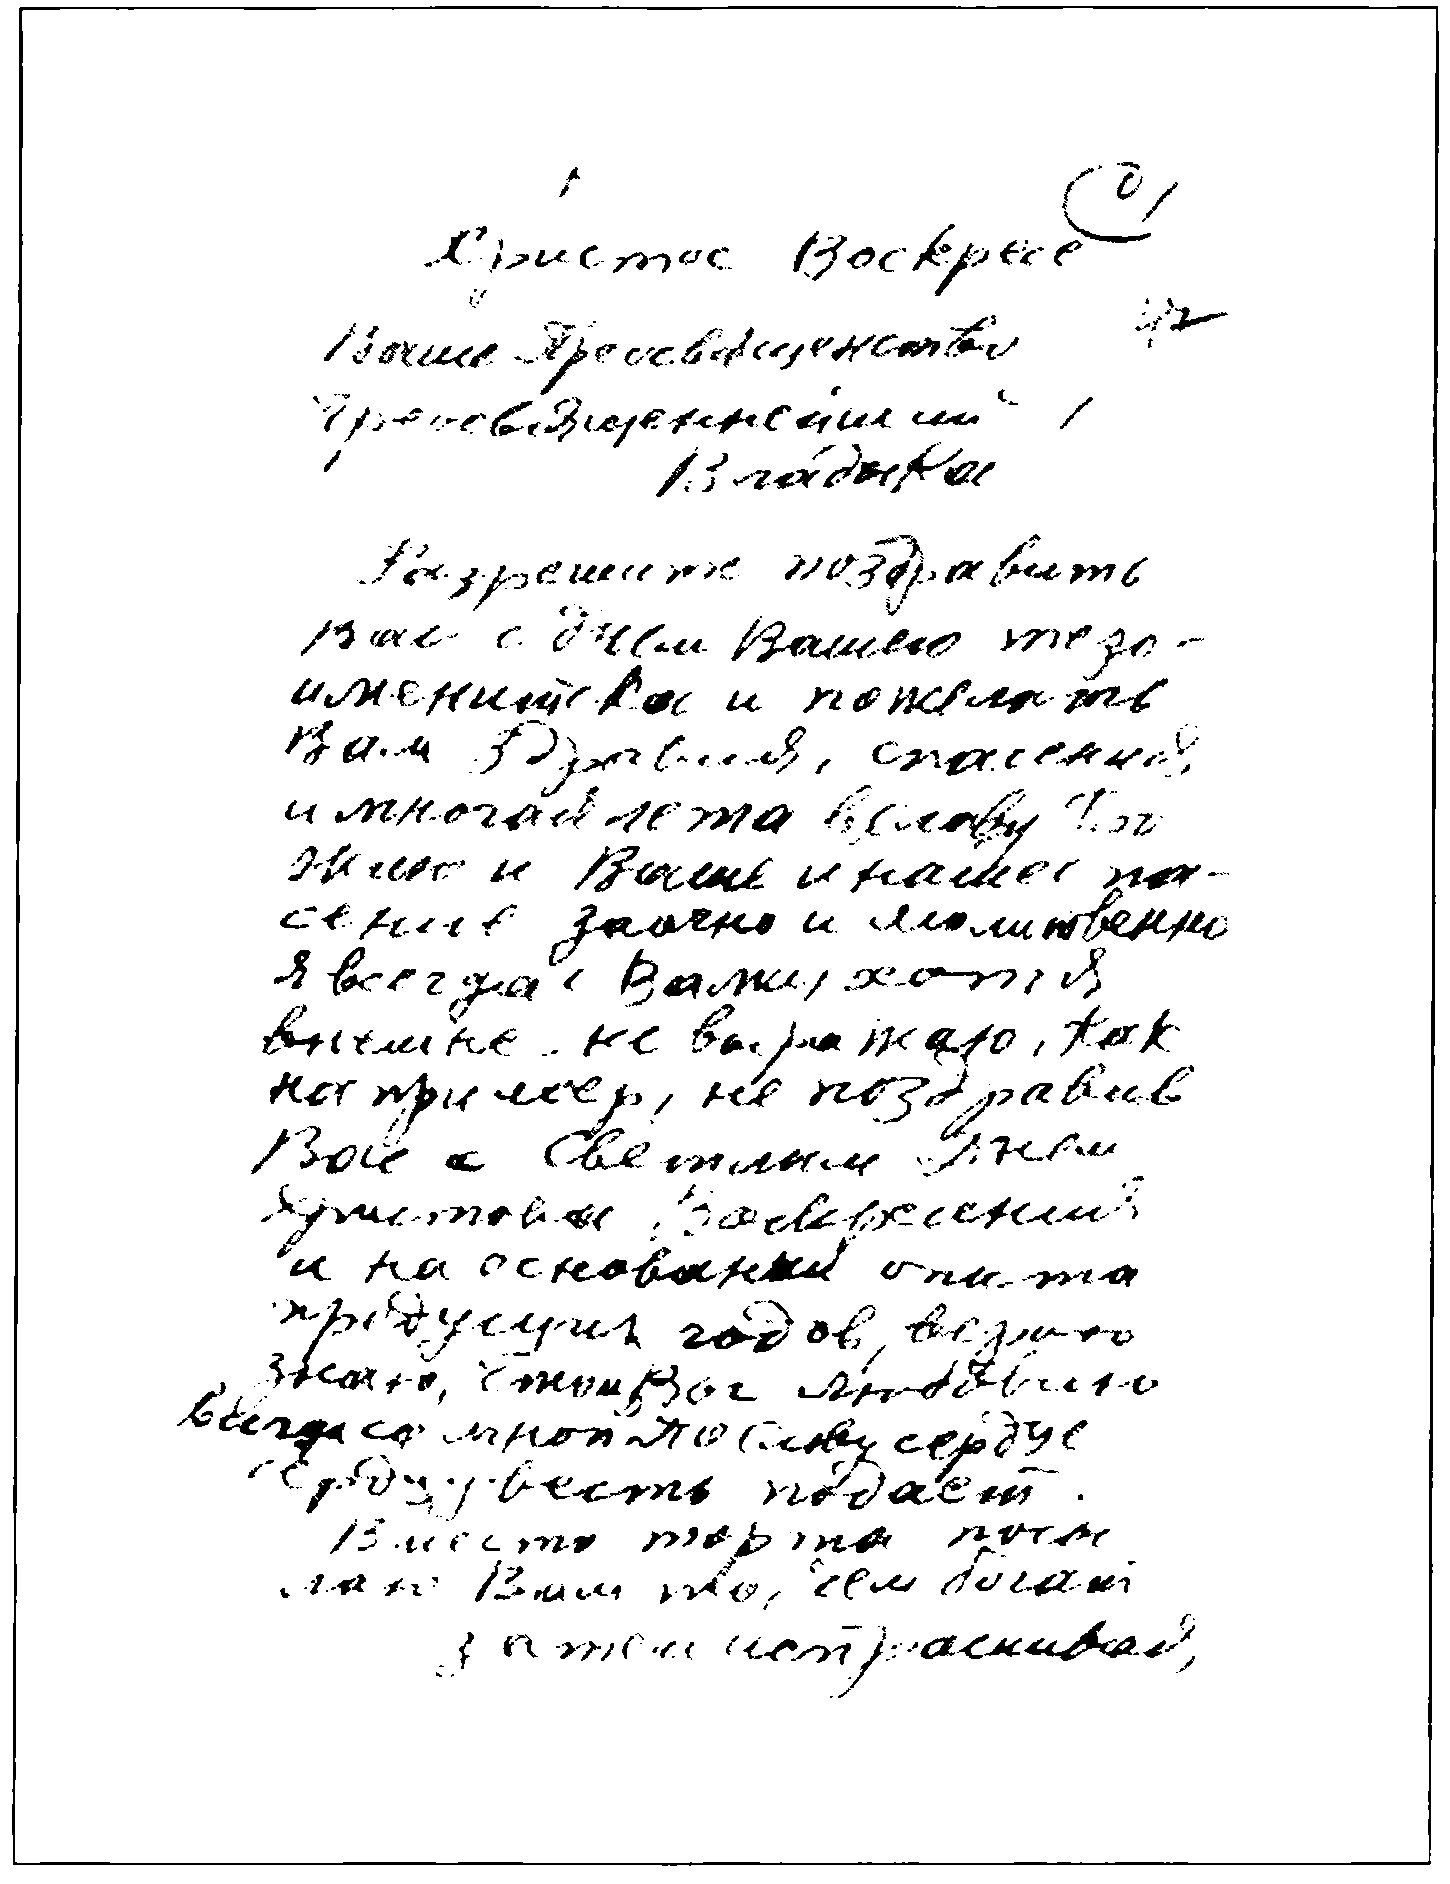 Христос Воскресе
Ваше Преосвященство
Преосвященнейший
Владыка
Разрешите поздравить
Вас с днем Вашего тезо-
именитства и пожелать
Вам здравия, спасения,
и многая лета в славу Бо
жию и Ваше и наше спа-
сение заочно и молитвенно
я всегда с Вами, хотя
внешне не выражаю, как
например, не поздравив
Вас с Светлым Днем
Христова Воскресения
и на основании опыта
предущих годов,
знаю, что и Вы с любовию
всегда со мной По слову сердце
сердцу весть подает.
Вместо торта посы
лаю Вам то, чем богат
затем испрашивая,